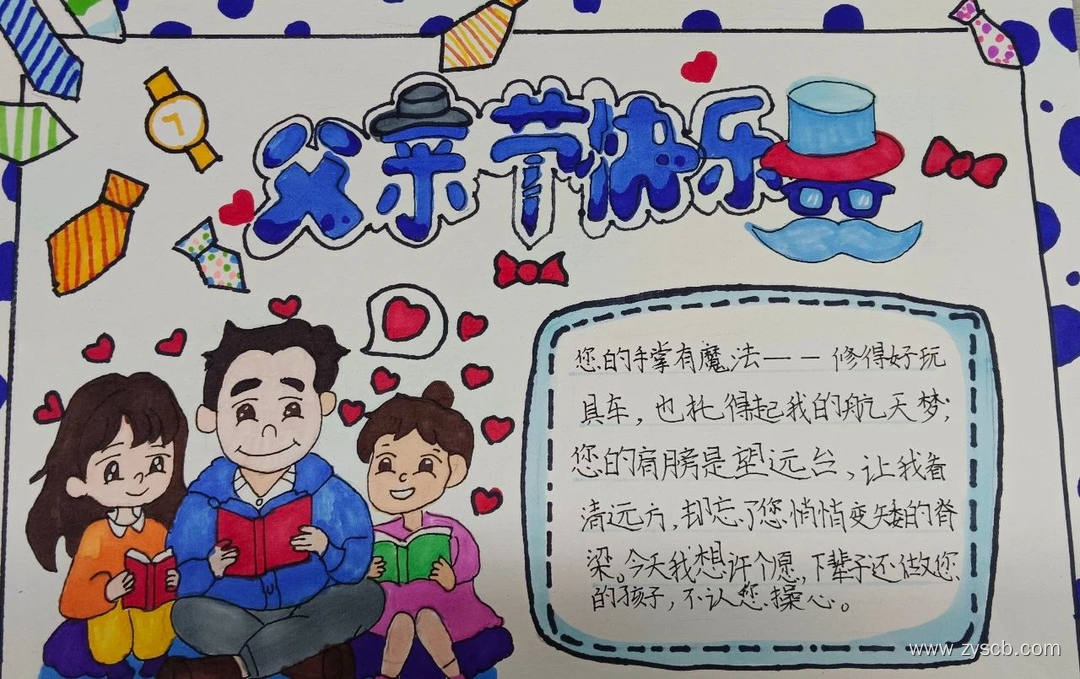 父亲节快乐
您的手掌有魔法——修得好玩
具车，也托得起我的航天梦；
您的肩膀是望远台，让我看
清远方，却忘了您悄悄变矮的脊
梁。今天我想许个愿，下辈子还做您
的孩子，不认您操心。
www.zyscb.com